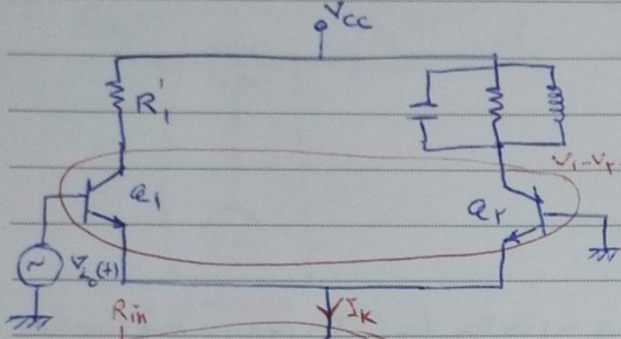 Vcc
R'₁
V₁-V₂
Q₁
Q₂
V₀(t)
Rin
I_K